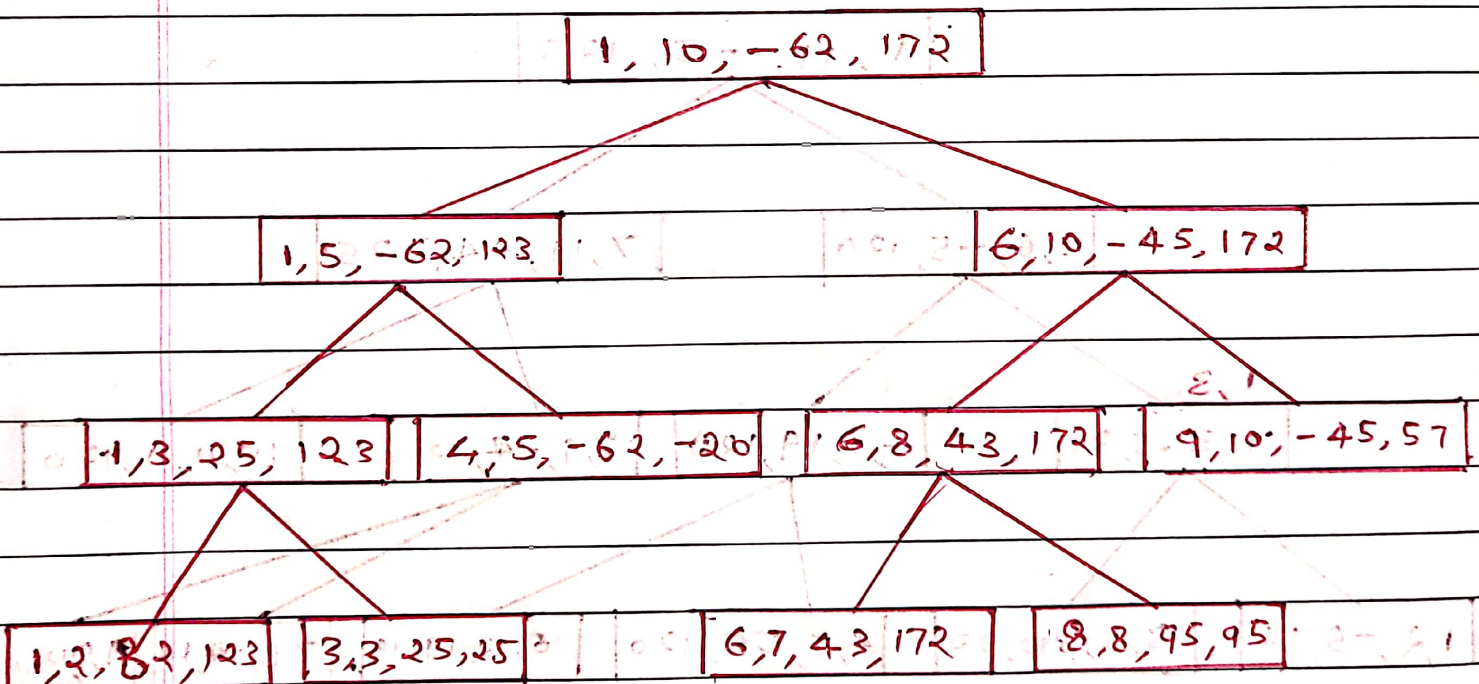 1, 10, -62, 172
1, 5, -62, 123
6, 10, -45, 172
1, 3, 25, 123
4, 5, -62, -20
6, 8, 43, 172
9, 10, -45, 57
1, 2, 82, 123
3, 3, 25, 25
6, 7, 43, 172
8, 8, 95, 95